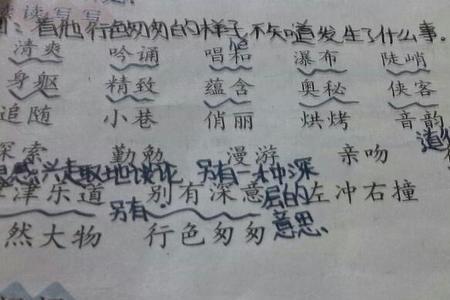 读读写写
看他行色匆匆的样子,不知道发生了什么事。
清爽 吟诵 唱和 瀑布 陡峭
hè
身躯 精致 蕴含 奥秘 侠客
追随 小巷 俏丽 烘烤 音韵
探索 勤勉 漫游 亲吻
感兴趣地谈论 另有一种深
津乐道 别有深意 层的 左冲右撞
另有
然大物 行色匆匆 意思